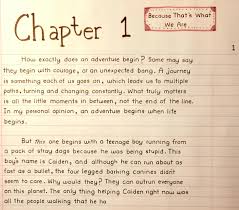 Chapter 1
Because That's What
We Are
1
How exactly does an adventure begin? Some may say
they begin with courage, or an unexpected bang. A journey
is something each of us goes on, which leads us to multiple
paths, turning and changing constantly. What truly matters
is all the little moments in between, not the end of the line.
In my personal opinion, an adventure begins when life
begins.
But this one begins with a teenage boy running from
a pack of stray dogs because he was being stupid. This
boy's name is Caiden, and although he can run about as
fast as a bullet, the four legged barking canines didn't
seem to care. Why would they? They can outrun everyone
on this planet. The only thing helping Caiden right now was
all the people walking that he ha